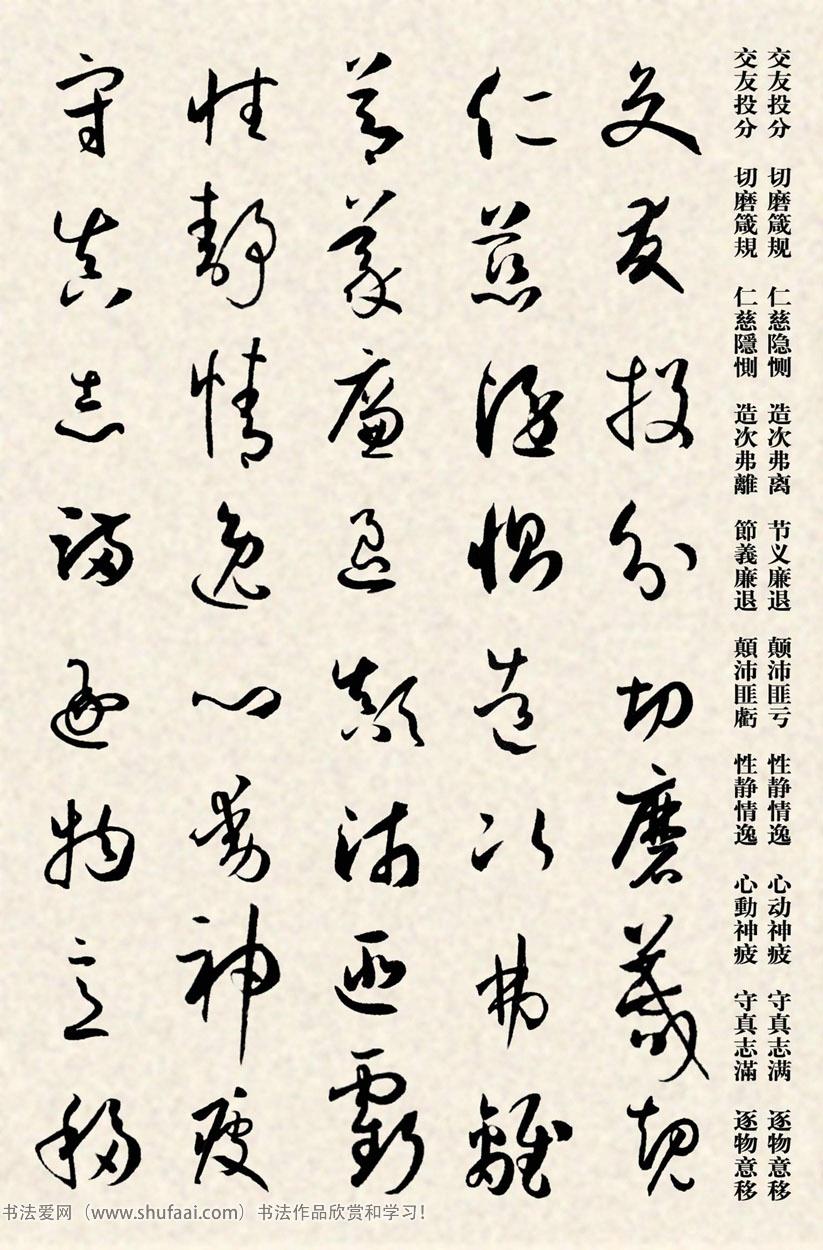 交友投分 切磨箴规 仁慈隐恻 造次弗离 节义廉退 颠沛匪亏 性静情逸 心动神疲 守真志满 逐物意移
交友投分 切磨箴規 仁慈隱惻 造次弗離 節義廉退 顛沛匪虧 性静情逸 心動神疲 守真志滿 逐物意移
交友投分切磨箴規
仁慈隱惻造次弗離
節義廉退顛沛匪虧
性靜情逸心動神疲
守真志滿逐物意移
书法爱网（www.shufaai.com）书法作品欣赏和学习！